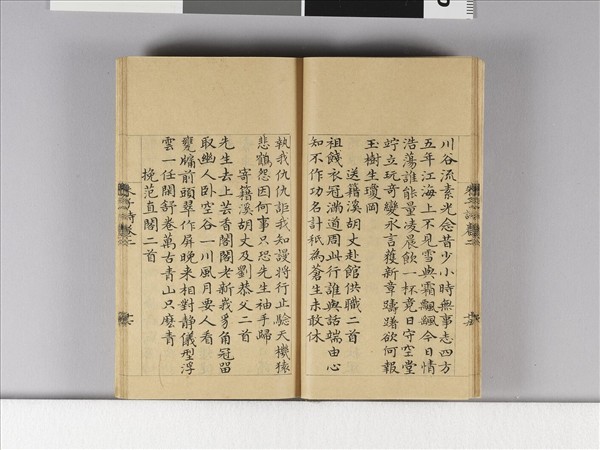 川谷流素光念昔少小時無事志四方
五年江海上不見雪與霜飄飄今日情
浩蕩誰能量凌晨飲一杯竟日守空堂
竚立玩奇變永言獲新章躊躇欲何報
玉樹生瓊岡
送籍溪胡丈赴館供職二首
祖餞衣冠滿道周此行誰與話端由心
知不作功名計秪為蒼生未敢休
執我仇仇詎我知謾將行止驗天機猿
悲鶴怨因何事只恐先生袖手歸
寄籍溪胡丈及劉恭父二首
先生去上芸香閣閣老新峩豸角冠留
取幽人臥空谷一川風月要人看
甕牖前頭翠作屏晚來相對靜儀型浮
雲一任閒舒卷萬古青山只麼青
挽范直閣二首